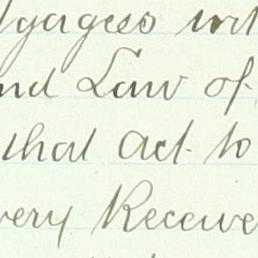 gagees wit
nd Law of
that act to
very Receive